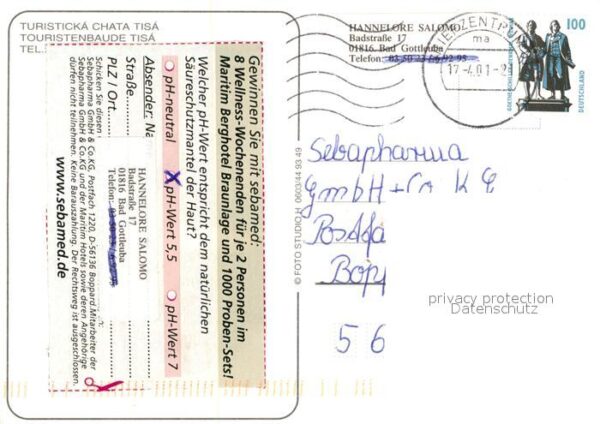 TURISTICKÁ CHATA TISÁ
TOURISTENBAUDE TISÁ
TEL.:
Gewinnen Sie mit sebamed:
8 Wellness-Wochenenden für je 2 Personen im
Maritim Berghotel Braunlage und 1000 Proben-Sets!
Welcher pH-Wert entspricht dem natürlichen
Säureschutzmantel der Haut?
pH-neutral X pH-Wert 5,5 pH-Wert 7
Absender: Na
Straße:
PLZ / Ort:
HANNELORE SALOMO
Badstraße 17
01816 Bad Gottleuba
Telefon:
Schicken Sie diesen
Sebapharma GmbH & Co.KG, Postfach 1220, D-56136 Boppard. Mitarbeiter der
Sebapharma GmbH & Co.KG und der Maritim Hotels sowie deren Angehörige
dürfen nicht teilnehmen. Keine Barauszahlung. Der Rechtsweg ist ausgeschlossen.
www.sebamed.de
© FOTO STUDIO H
HANNELORE SALOMO
Badstraße 17
01816 Bad Gottleuba
Telefon:
BRIEFZENTRUM
ma
100
DEUTSCHLAND
Sebapharma
GmbH + Co K G
Postfa
Bopp
56
privacy protection
Datenschutz